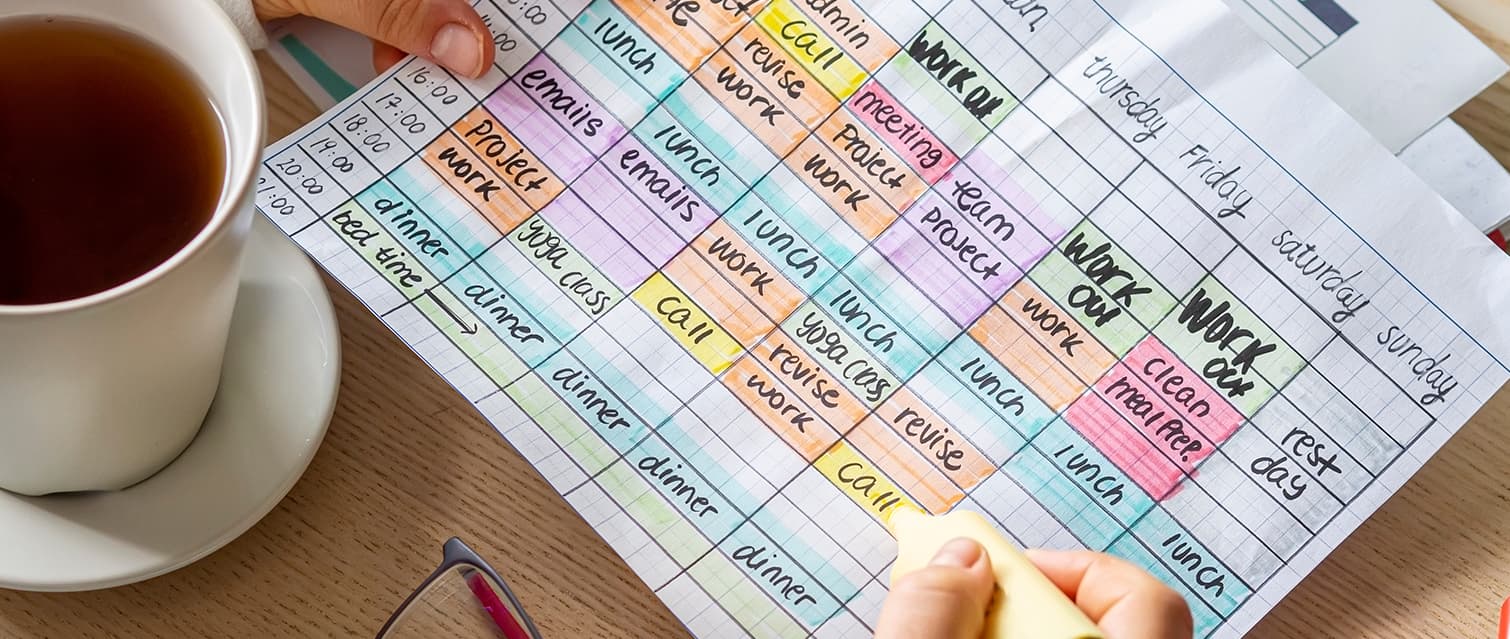 16:00
17:00
18:00
19:00
20:00
thursday
Friday
saturday
sunday
lunch
emails
project
work
dinner
bed time
call
revise
work
lunch
emails
yoga class
dinner
admin
meeting
project
work
lunch
work
call
dinner
work out
team
project
lunch
yoga class
revise
work
dinner
work
out
work
lunch
revise
call
dinner
work
out
clean
meal prep.
lunch
rest
day
lunch